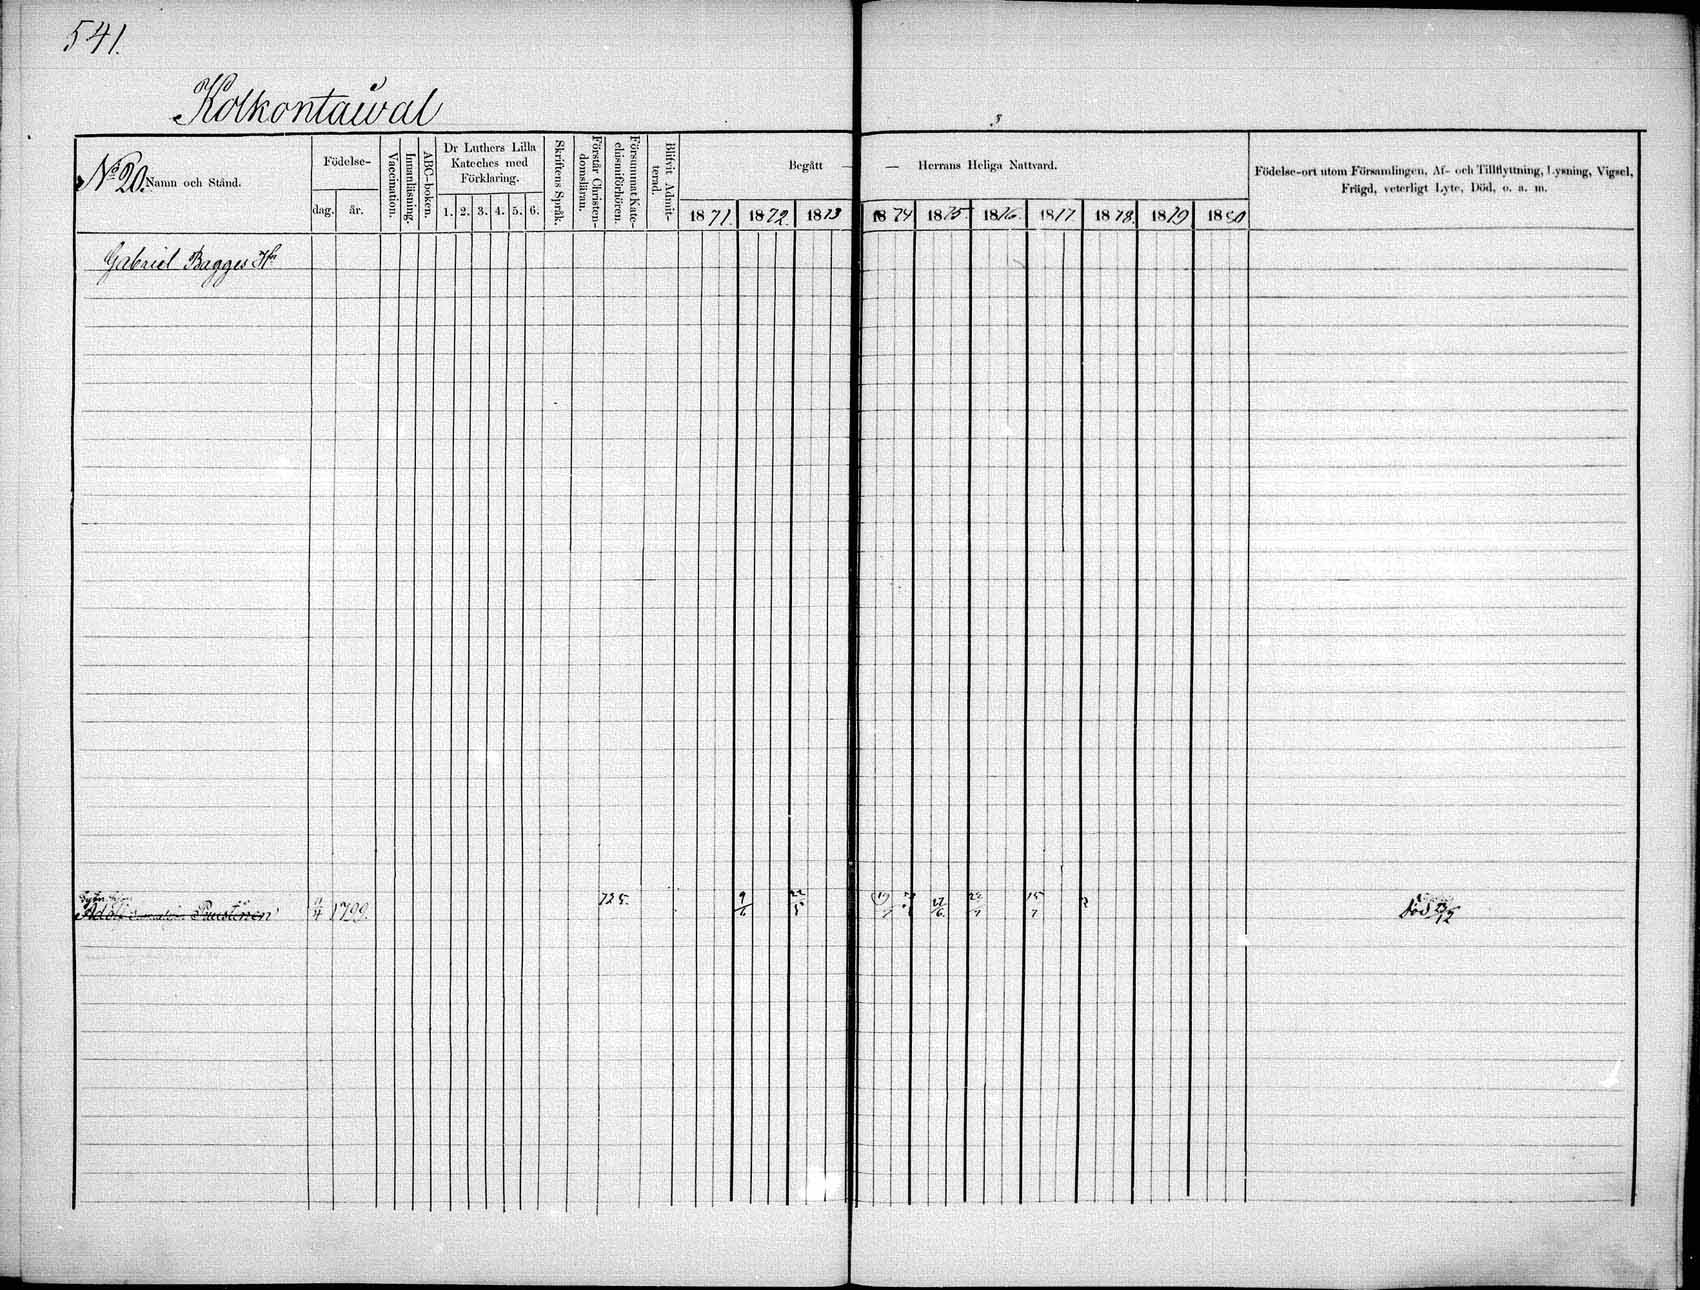 541.
Kolkontaival
No 20. Namn och Stånd.
Födelse-
dag. år.
Vaccination.
Innanläsning.
ABC-boken.
Dr Luthers Lilla
Kateches med
Förklaring.
1. 2. 3. 4. 5. 6.
Skriftens Språk.
Förstår Christen-
domsläran.
Försummat Kate-
chismiförhören.
Blifvit Admit-
terad.
Begått — — Herrans Heliga Nattvard.
1871. 1872. 1873 1874 1875. 1876. 1877. 1878. 1879 1880
Födelse-ort utom Församlingen, Af- och Tillflyttning, Lysning, Vigsel,
Frägd, veterligt Lyte, Död, o. a. m.
Gabriel Bagges
Adolf Puustinen 1799. 725. 9/6
död